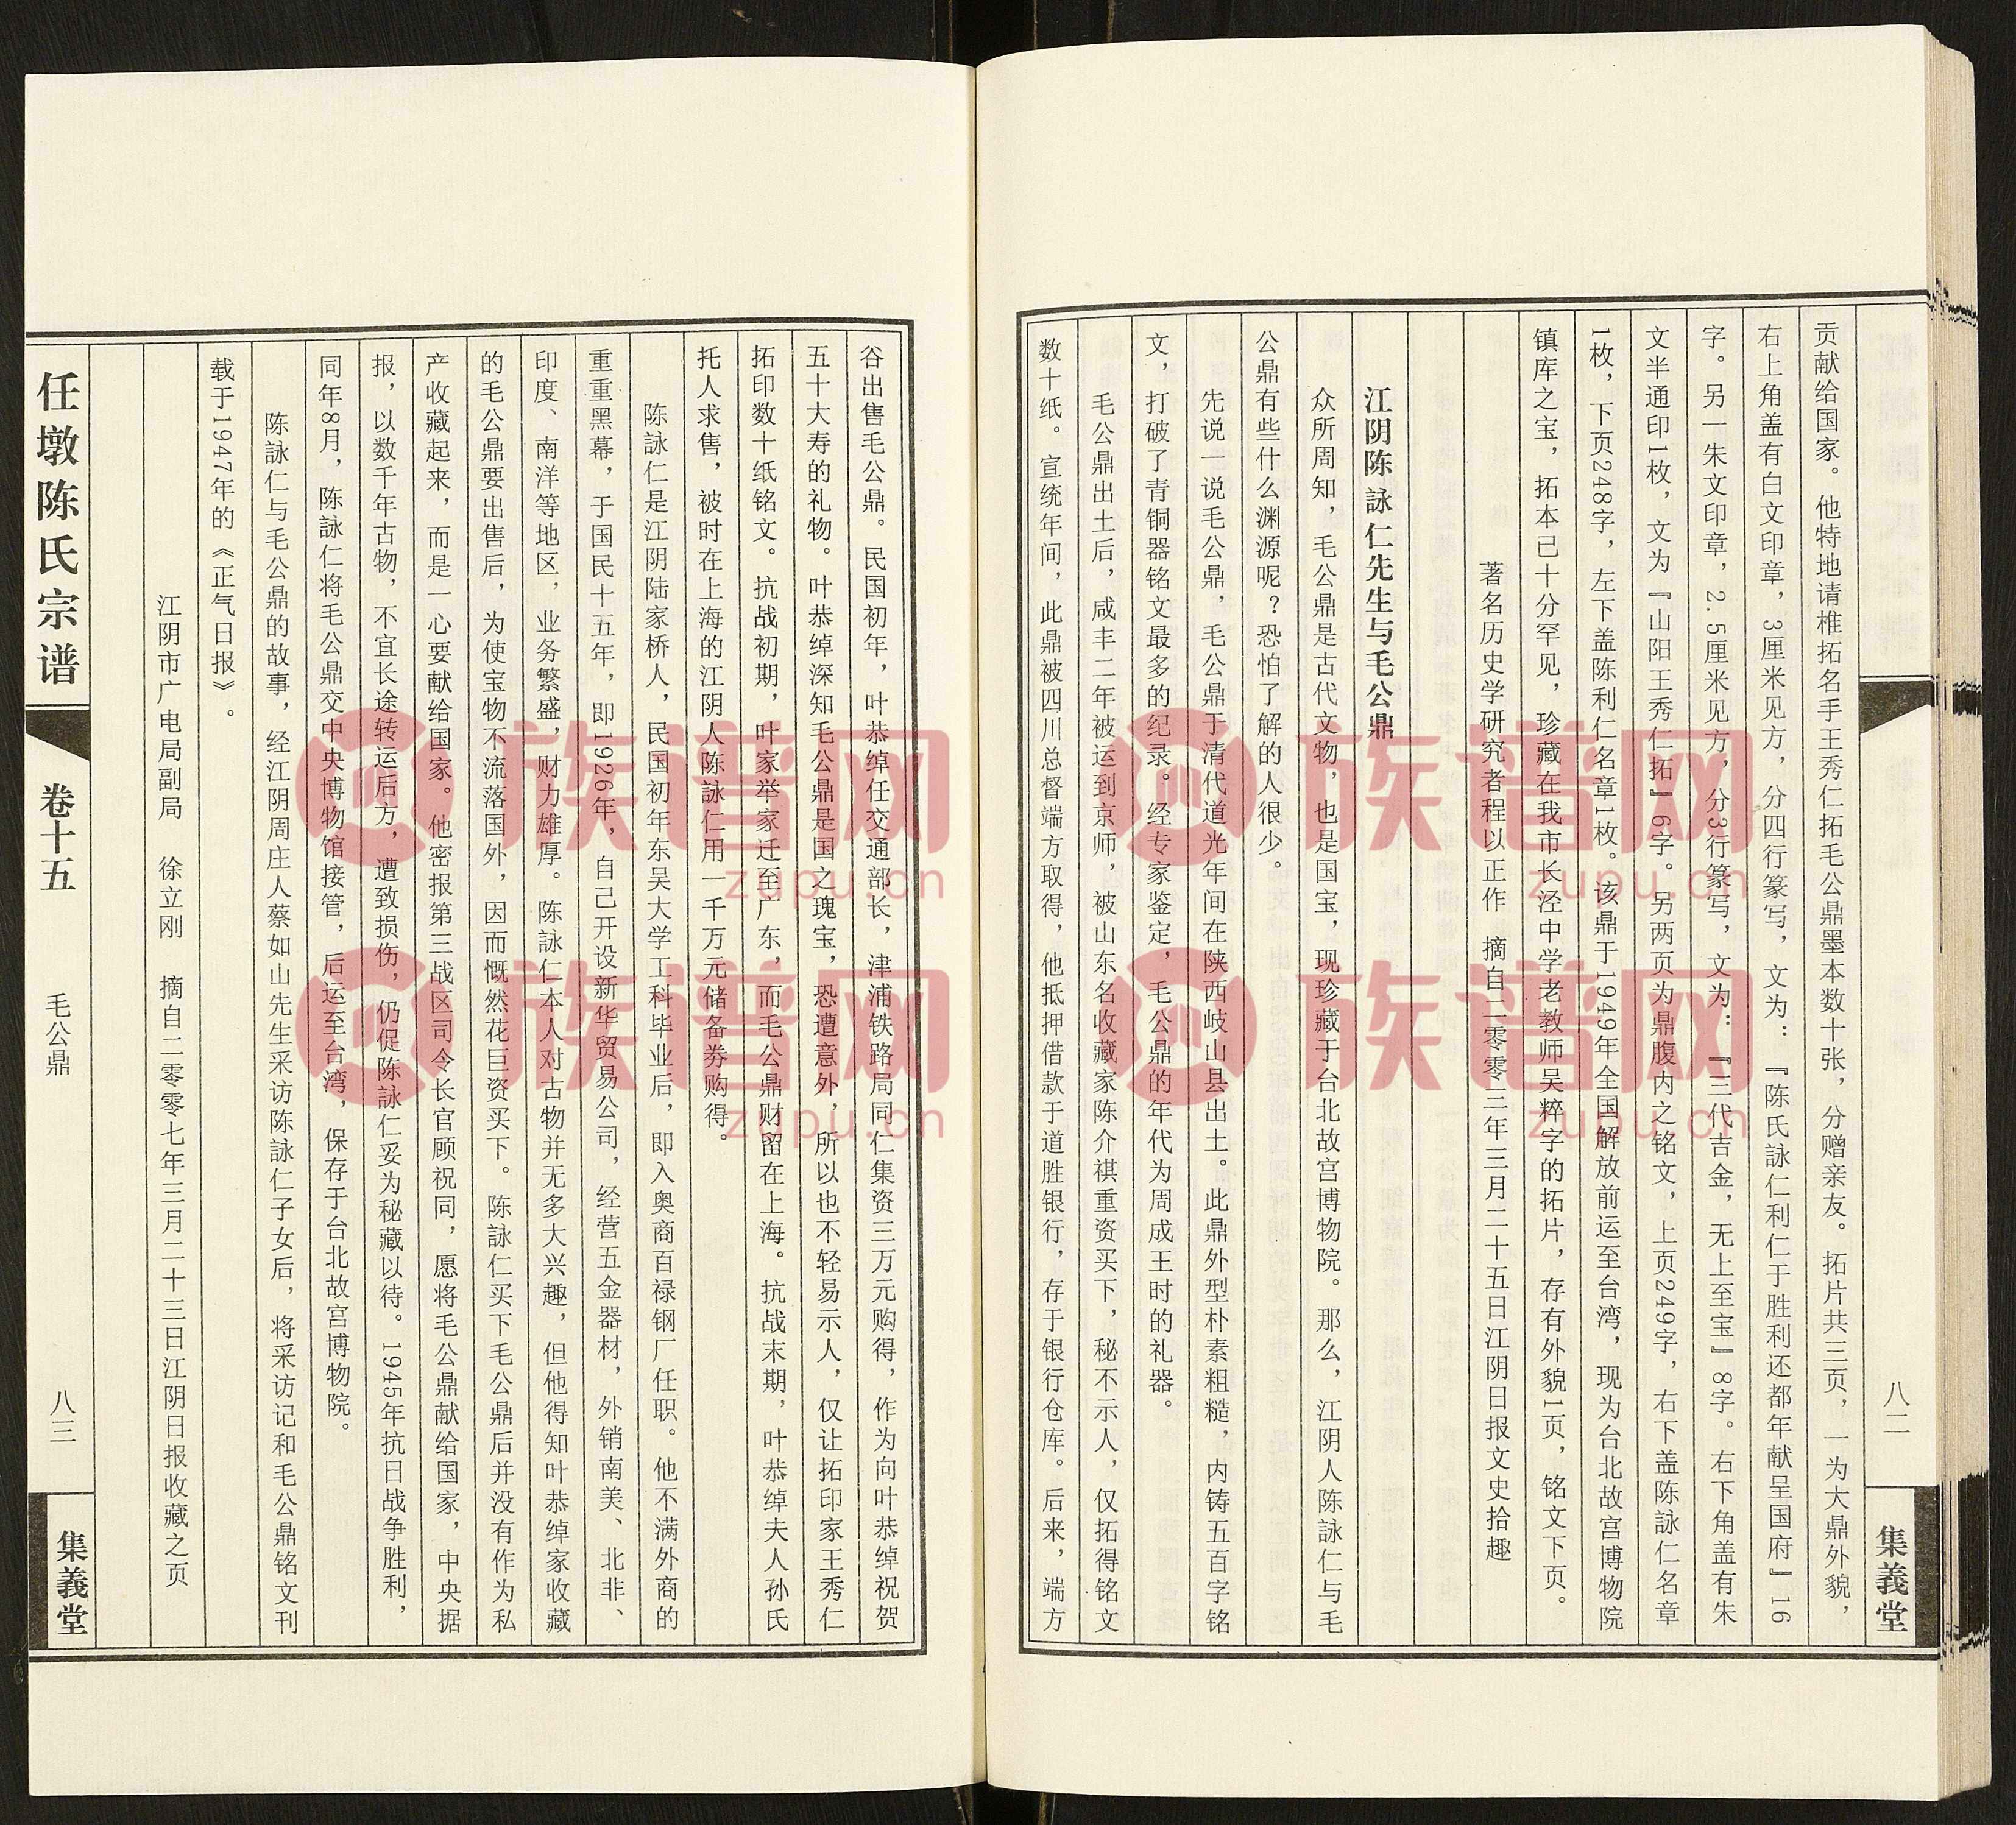 贡献给国家。他特地请椎拓名手王秀仁拓毛公鼎墨本数十张，分赠亲友。拓片共三页，一为大鼎外貌，
右上角盖有白文印章，3厘米见方，分四行篆写，文为：『陈氏詠仁利仁于胜利还都年献呈国府』16
字。另一朱文印章，2.5厘米见方，分3行篆写，文为：『三代吉金，无上至宝』8字。右下角盖有朱
文半通印1枚，文为『山阳王秀仁拓』6字。另两页为鼎腹内之铭文，上页249字，右下盖陈詠仁名章
1枚，下页248字，左下盖陈利仁名章1枚。该鼎于1949年全国解放前运至台湾，现为台北故宫博物院
镇库之宝，拓本已十分罕见，珍藏在我市长泾中学老教师吴粹字的拓片，存有外貌1页，铭文下页。
著名历史学研究者程以正作 摘自二零零三年三月二十五日江阴日报文史拾趣
江阴陈詠仁先生与毛公鼎
众所周知，毛公鼎是古代文物，也是国宝，现珍藏于台北故宫博物院。那么，江阴人陈詠仁与毛
公鼎有些什么渊源呢？恐怕了解的人很少。
先说一说毛公鼎，毛公鼎于清代道光年间在陕西岐山县出土。此鼎外型朴素粗糙，内铸五百字铭
文，打破了青铜器铭文最多的纪录。经专家鉴定，毛公鼎的年代为周成王时的礼器。
毛公鼎出土后，咸丰二年被运到京师，被山东名收藏家陈介祺重资买下，秘不示人，仅拓得铭文
数十纸。宣统年间，此鼎被四川总督端方取得，他抵押借款于道胜银行，存于银行仓库。后来，端方
八二
集義堂
谷出售毛公鼎。民国初年，叶恭绰任交通部长，津浦铁路局同仁集资三万元购得，作为向叶恭绰祝贺
五十大寿的礼物。叶恭绰深知毛公鼎是国之瑰宝，恐遭意外，所以也不轻易示人，仅让拓印家王秀仁
拓印数十纸铭文。抗战初期，叶家举家迁至广东，而毛公鼎财留在上海。抗战末期，叶恭绰夫人孙氏
托人求售，被时在上海的江阴人陈詠仁用一千万元储备券购得。
陈詠仁是江阴陆家桥人，民国初年东吴大学工科毕业后，即入奥商百禄钢厂任职。他不满外商的
重重黑幕，于国民十五年，即1926年，自己开设新华贸易公司，经营五金器材，外销南美、北非、
印度、南洋等地区，业务繁盛，财力雄厚。陈詠仁本人对古物并无多大兴趣，但他得知叶恭绰家收藏
的毛公鼎要出售后，为使宝物不流落国外，因而慨然花巨资买下。陈詠仁买下毛公鼎后并没有作为私
产收藏起来，而是一心要献给国家。他密报第三战区司令长官顾祝同，愿将毛公鼎献给国家，中央据
报，以数千年古物，不宜长途转运后方，遭致损伤，仍促陈詠仁妥为秘藏以待。1945年抗日战争胜利，
同年8月，陈詠仁将毛公鼎交中央博物馆接管，后运至台湾，保存于台北故宫博物院。
陈詠仁与毛公鼎的故事，经江阴周庄人蔡如山先生采访陈詠仁子女后，将采访记和毛公鼎铭文刊
载于1947年的《正气日报》。
江阴市广电局副局 徐立刚 摘自二零零七年三月二十三日江阴日报收藏之页
任墩陈氏宗谱
卷十五
毛公鼎
八三
集義堂
族谱网
zupu.cn
族谱网
zupu.cn
族谱网
zupu.cn
族谱网
zupu.cn